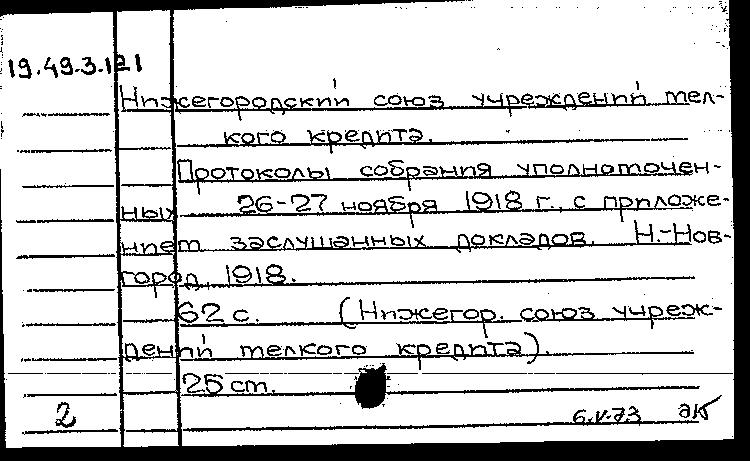 19.49.3.121
Нижегородский союз учреждений мел-
кого кредита.
Протоколы собрания уполномочен-
ных 26-27 ноября 1918 г., с приложе-
нием заслушанных докладов. Н.-Нов-
город, 1918.
62 с. (Нижегор. союз учреж-
дений мелкого кредита).
25 см.
2 6.V.73 ЭК